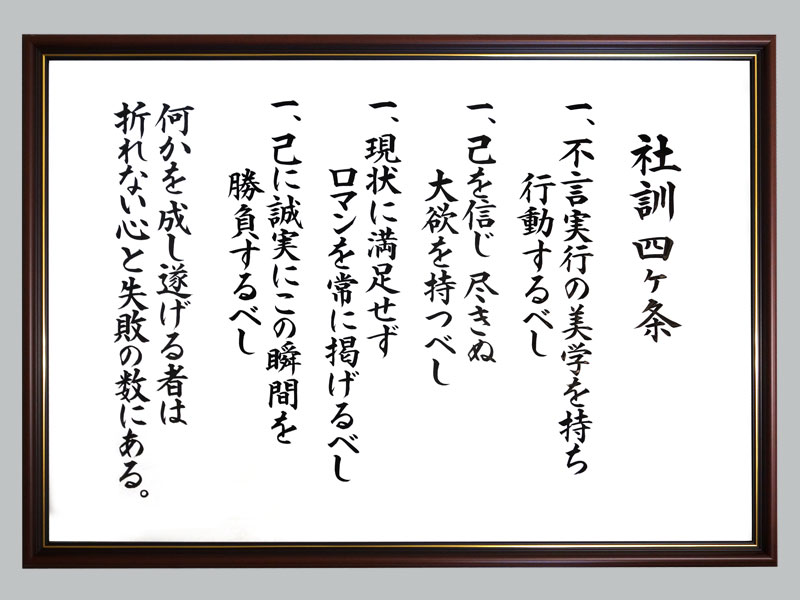 社訓 四ヶ条
一、不言実行の美学を持ち
行動するべし
一、己を信じ 尽きぬ
大欲を持つべし
一、現状に満足せず
ロマンを常に掲げるべし
一、己に誠実にこの瞬間を
勝負するべし
何かを成し遂げる者は
折れない心と失敗の数にある。